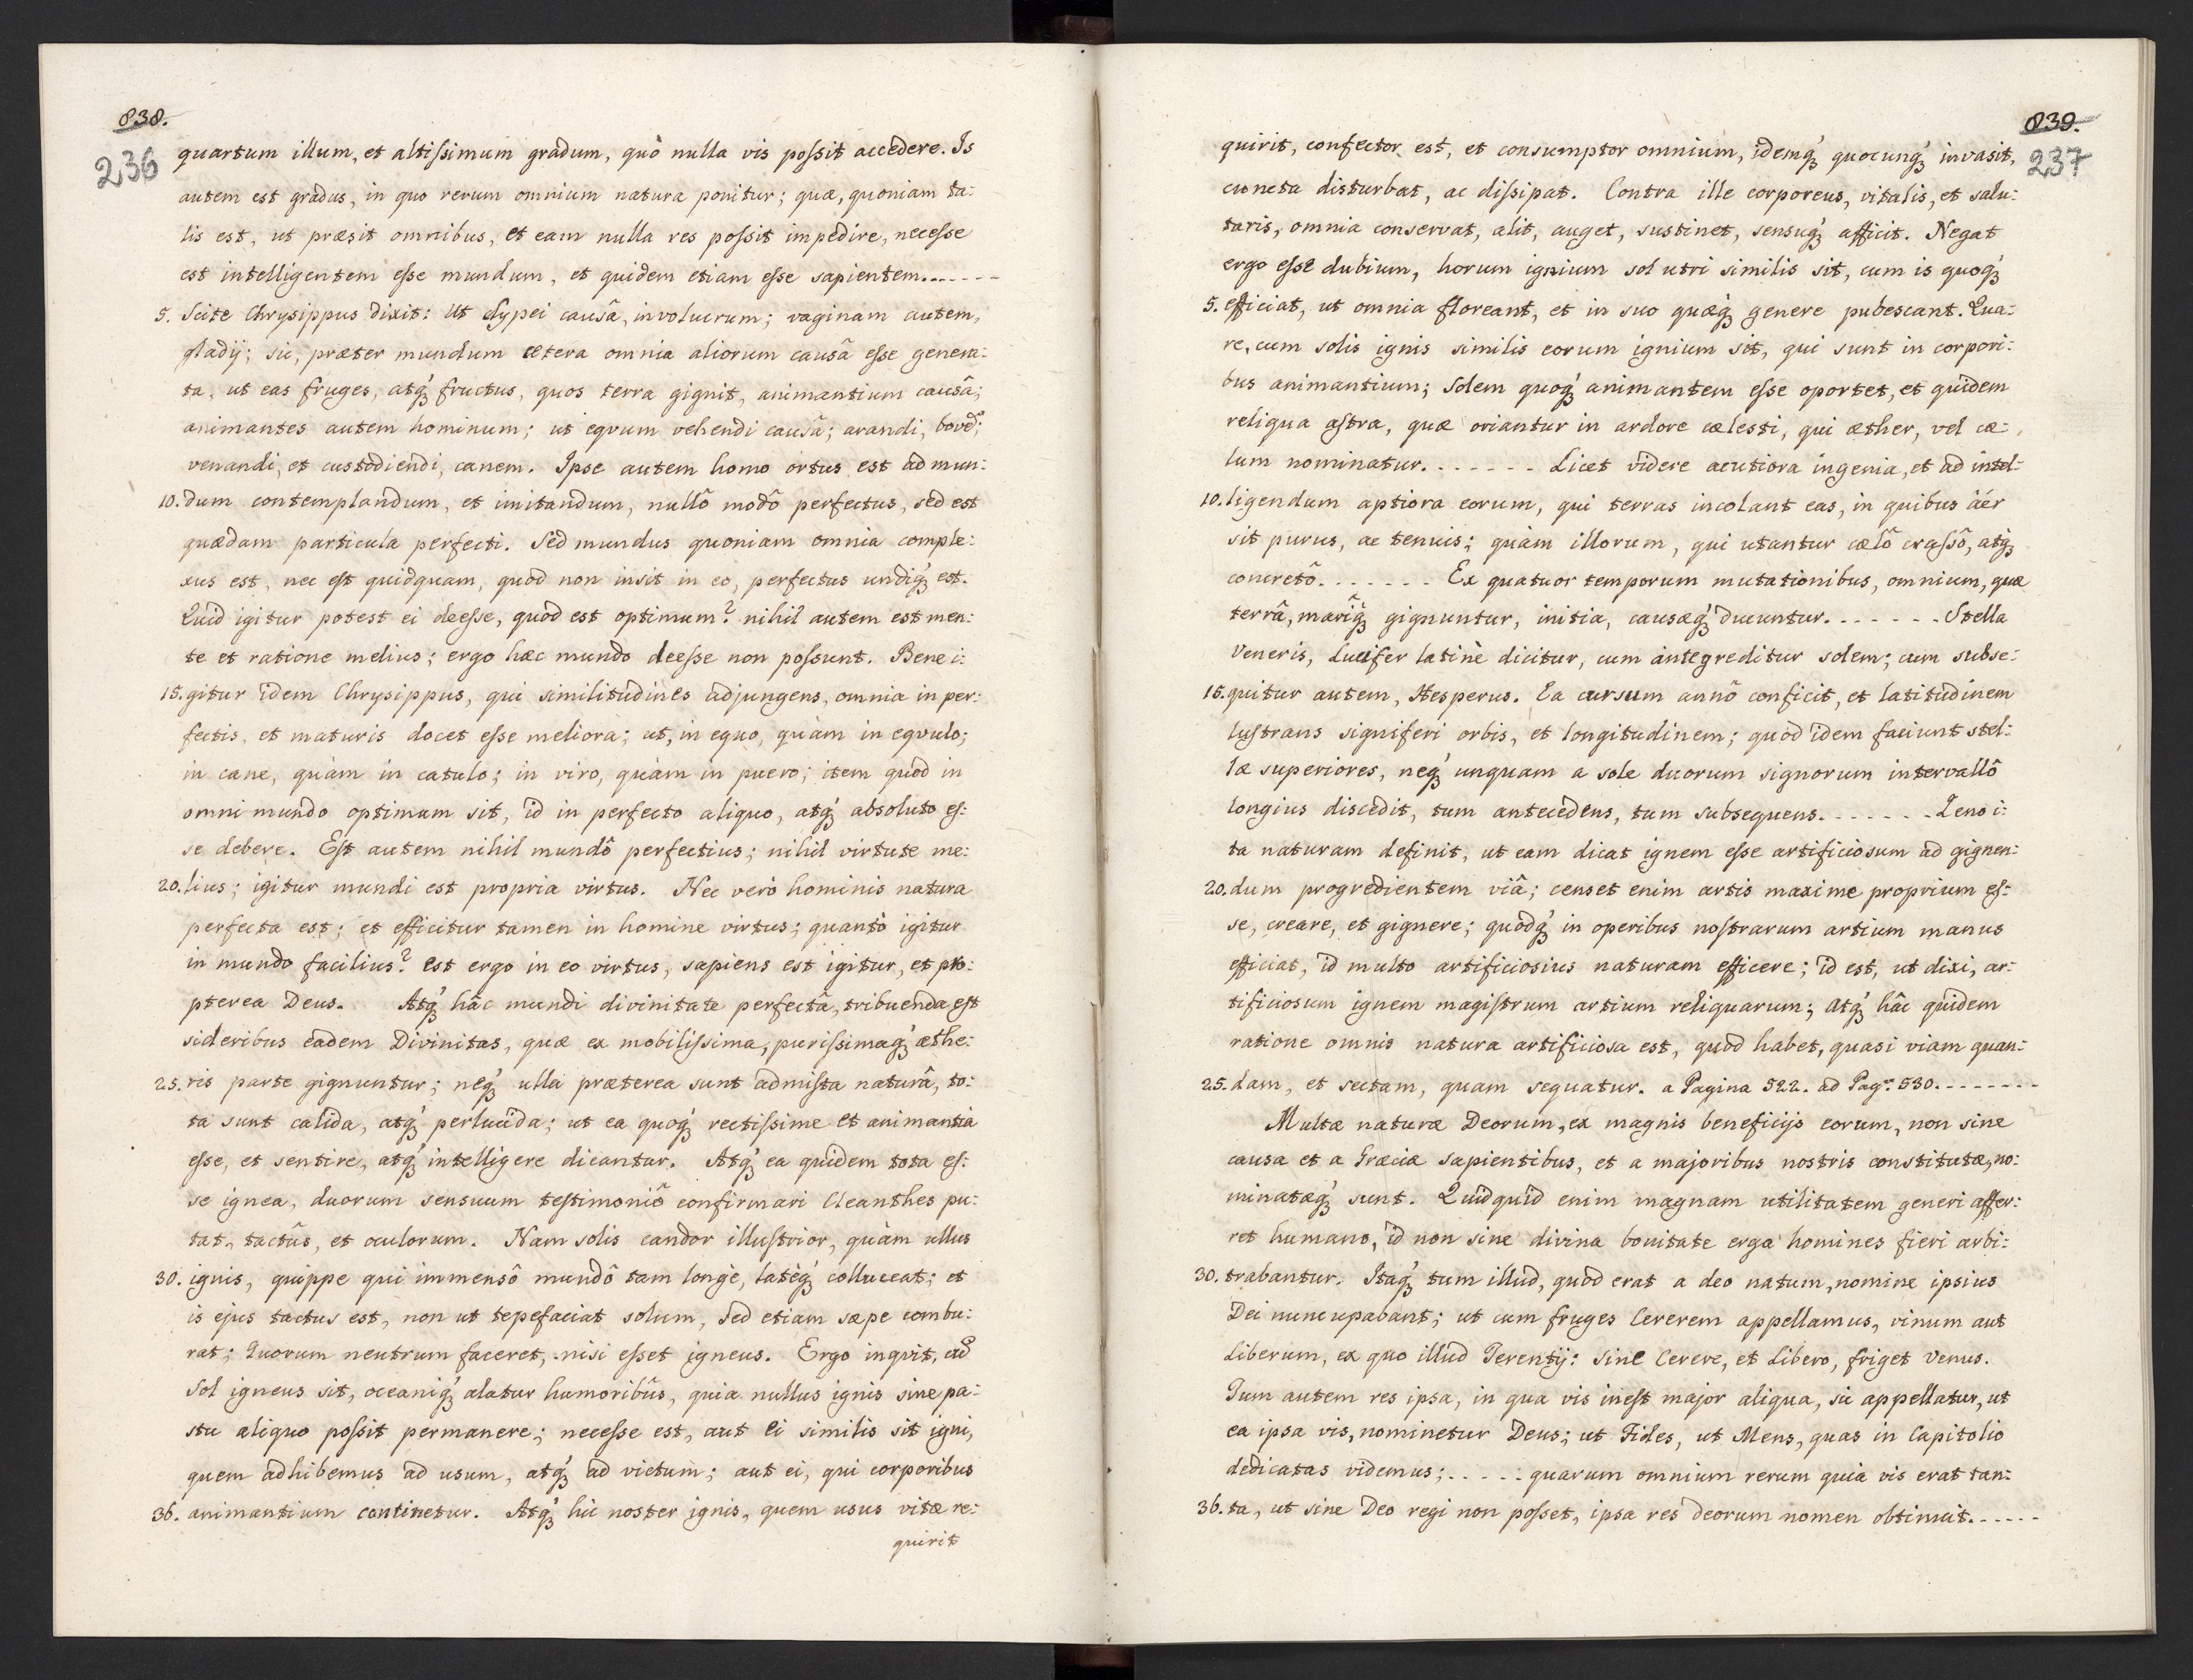 838.
236
quartum illum, et altissimum gradum, quò nulla vis possit accedere. Is
autem est gradus, in quo rerum omnium natura ponitur; quæ, quoniam ta:
lis est, ut præsit omnibus, et eam nulla res possit impedire, necesse
est intelligentem esse mundum, et quidem etiam esse sapientem.......
5. Scite Chrysippus dixit: Ut clypei causâ, involucrum; vaginam autem,
gladij; sic, præter mundum cætera omnia aliorum causâ esse genera:
ta, ut eas fruges, atq́ꝫ fructus, quos terra gignit, animantium causâ;
animantes autem hominum; ut eqvum vehendi causâ; arandi, bovẽ;
venandi, et custodiendi, canem. Ipse autem homo ortus est ad mun:
10. dum contemplandum, et imitandum, nullô modô perfectus, sed est
quædam particula perfecti. Sed mundus quoniam omnia comple:
xus est, nec est quidquam, quod non insit in eo, perfectus undiq́ꝫ est.
Quid igitur potest ei deesse, quod est optimum? nihil autem est men:
te et ratione melius; ergo hæc mundo deesse non possunt. Bene i:
15. gitur idem Chrysippus, qui similitudines adjungens, omnia in per:
fectis, et maturis docet esse meliora; ut, in equo, quàm in eqvulo;
in cane, quàm in catulo; in viro, quàm in puero; item quod in
omni mundo optimum sit, id in perfecto aliquo, atq́ꝫ absoluto es:
se debere. Est autem nihil mundô perfectius; nihil virtute me:
20. lius; igitur mundi est propria virtus. Nec verò hominis natura
perfecta est; et efficitur tamen in homine virtus; quantò igitur
in mundo facilius? est ergo in eo virtus, sapiens est igitur, et pro:
pterea Deus. Atq́ꝫ hâc mundi divinitate perfectâ, tribuenda est
sideribus eadem Divinitas, quæ ex mobilissima, purissimaq́ꝫ æthe:
25. ris parte gignuntur; neq́ꝫ ulla præterea sunt admista naturâ, to:
ta sunt calida, atq́ꝫ perlucida; ut ea quoq́ꝫ rectissime et animantia
esse, et sentire, atq́ꝫ intelligere dicantur. Atq́ꝫ ea quidem tota es:
se ignea, duorum sensuum testimoniô confirmari Cleanthes pu:
tat, tactûs, et oculorum. Nam solis candor illustrior, quàm ullus
30. ignis, quippe qui immensô mundô tam longè, latèq́ꝫ colluceat; et
is ejus tactus est, non ut tepefaciat solum, sed etiam sæpe combu:
rat; Quorum neutrum faceret, nisi esset igneus. Ergo inqvit, cũ
Sol igneus sit, oceaniq́ꝫ alatur humoribûs, quia nullus ignis sine pa:
stu aliquo possit permanere; necesse est, aut ei similis sit igni,
quem adhibemus ad usum, atq́ꝫ ad victum; aut ei, qui corporibus
36. animantium continetur. Atq́ꝫ hic noster ignis, quem usus vitæ re:
quirit
839.
237
quirit, confector est, et consumptor omnium, idemq́ꝫ quocunq́ꝫ invasit,
cuncta disturbat, ac dissipat. Contra ille corporeus, vitalis, et salu:
taris, omnia conservat, alit, auget, sustinet, sensuq́ꝫ afficit. Negat
ergo esse dubium, horum ignium sol utri similis sit, cum is quoq́ꝫ
5. efficiat, ut omnia floreant, et in suo quæq́ꝫ genere pubescant. Qua:
re, cum solis ignis similis eorum ignium sit, qui sunt in corpori:
bus animantium; Solem quoq́ꝫ animantem esse oportet, et quidem
reliqua astra, quæ oriantur in ardore cælesti, qui æther, vel cæ:
lum nominatur. . . . . . . Licet videre acutiora ingenia, et ad intel:
10. ligendum aptiora eorum, qui terras incolant eas, in quibus äér
sit purus, ac tenuis; quàm illorum, qui utantur cælô crassô, atq́ꝫ
concretô. . . . . . . Ex quatuor temporum mutationibus, omnium, quæ
terrâ, mariq̂ꝫ gignuntur, initia, causæq́ꝫ ducuntur. . . . . . . Stella
Veneris, Lucifer latinè dicitur, cum antegreditur solem; cum subse:
15. quitur autem, Hesperus. Ea cursum annô conficit, et latitudinem
lustrans signiferi orbis, et longitudinem; quod idem faciunt stel:
læ superiores, neq́ꝫ unquam a sole duorum signorum intervallô
longius discedit, tum antecedens, tum subsequens. . . . . . . Zeno i:
ta naturam definit, ut eam dicat ignem esse artificiosum ad gignen:
20. dum progredientem viâ; censet enim artis maxime proprium es:
se, creare, et gignere; quodq́ꝫ in operibus nostrarum artium manus
efficiat, id multo artificiosius naturam efficere; id est, ut dixi, ar:
tificiosum ignem magistrum artium reliquarum; Atq́ꝫ hâc quidem
ratione omnis natura artificiosa est, quod habet, quasi viam quan:
25. dam, et sectam, quam sequatur. a Pagina 522. ad Pag. 530. . . . . . . .
Multæ naturæ Deorum, ex magnis beneficijs eorum, non sine
causa et a Græciæ sapientibus, et a majoribus nostris constitutæ, no:
minatæq́ꝫ sunt. Quidquid enim magnam utilitatem generi affer:
ret humano, id non sine divina bonitate erga homines fieri arbi:
30. trabantur. Itaq́ꝫ tum illud, quod erat a deo natum, nomine ipsius
Dei nuncupabant; ut cum fruges Cererem appellamus, vinum aut
Liberum, ex quo illud Terentij: Sine Cerere, et Libero, friget Venus.
Tum autem res ipsa, in qua vis inest major aliqua, sic appellatur, ut
ea ipsa vis, nominetur Deus; ut Fides, ut Mens, quas in Capitolio
dedicatas videmus; . . . . . quarum omnium rerum quia vis erat tan:
36. ta, ut sine Deo regi non posset, ipsa res deorum nomen obtinuit. . . . . .